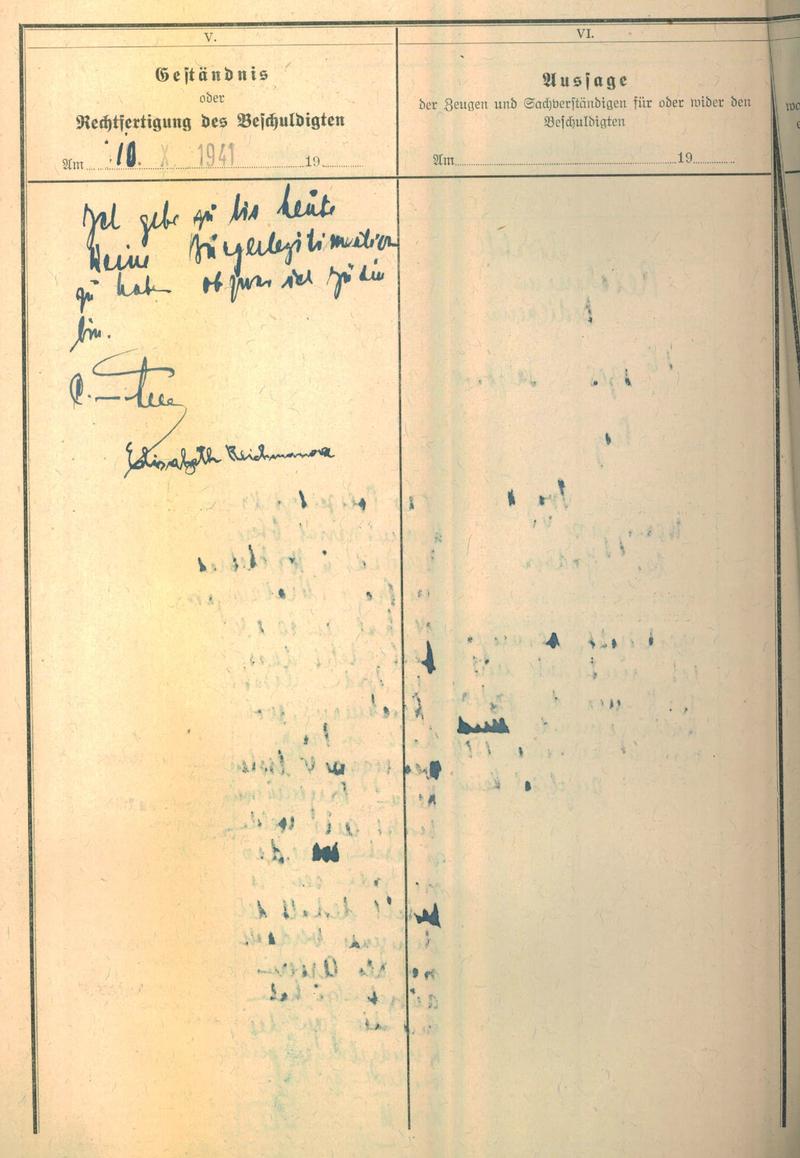 V.
Geständnis
oder
Rechtfertigung des Beschuldigten
Am 10. X 1941 19
Ich gebe zu bis heute
keine Bürgerlegitimation
zu haben ob zwar ich Jüdin
bin.
Elisabeth Reichmannova
VI.
Aussage
der Zeugen und Sachverständigen für oder wider den
Beschuldigten
Am 19